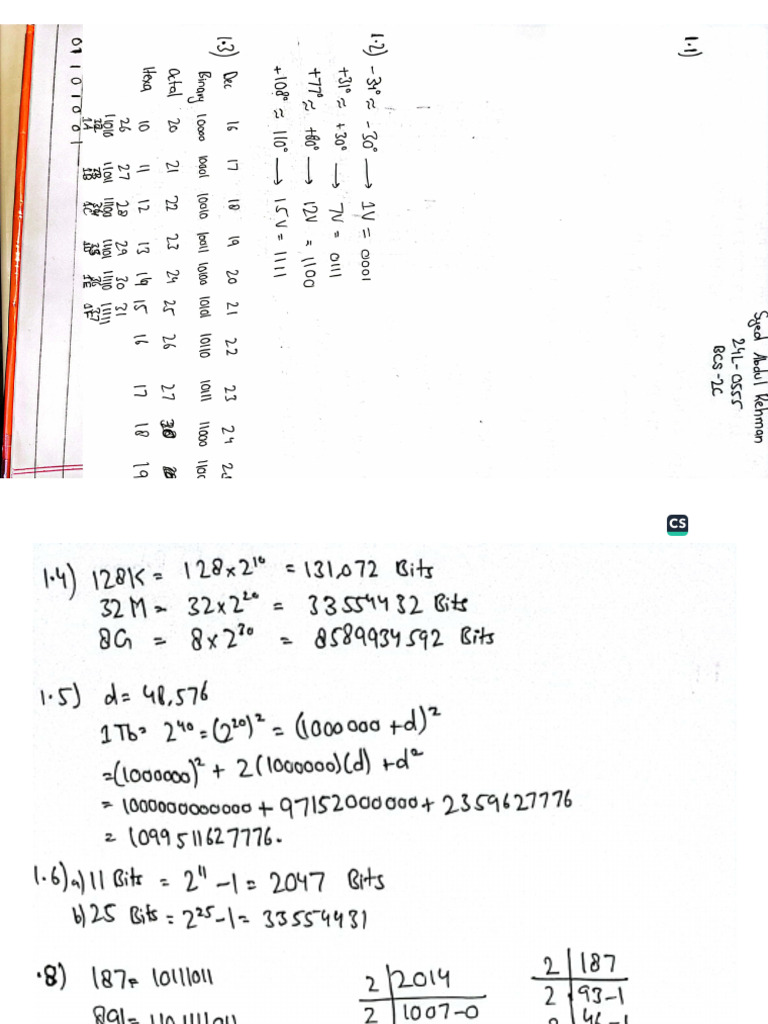 Syed Abdul Rehman
24L-0555
BCS-2C
1.1)
1.2) -34° ≈ -30° → 1V = 0001
+31° ≈ +30° → 7V = 0111
+77° ≈ +80° → 12V = 1100
+108° ≈ 110° → 15V = 1111
1.3) Dec 16 17 18 19 20 21 22 23 24
Binary 10000 10001 10010 10011 10100 10101 10110 10111 11000
Octal 20 21 22 23 24 25 26 27
Hexa 10 11 12 13 14 15 16 17 18 19
26 27 28 29 30 31
11010 11011 11100 11101 11110 11111
1A 1B 1C 1D 1E 1F
01101001
CS
1.4) 128K = 128×2¹⁰ = 131,072 Bits
32M = 32×2²⁰ = 33554432 Bits
8G = 8×2³⁰ = 8589934592 Bits
1.5) d = 48,576
1Tb = 2⁴⁰ = (2²⁰)² = (1000000 + d)²
=(1000000)² + 2(1000000)(d) + d²
= 1000000000000 + 97152000000 + 2359627776
= 1099511627776.
1.6) a) 11 Bits = 2¹¹ -1 = 2047 Bits
b) 25 Bits = 2²⁵-1 = 33554431
.8) 187= 10111011
891= 1101111011
2 2014
2 1007-0
2 187
2 93-1
2 46-1